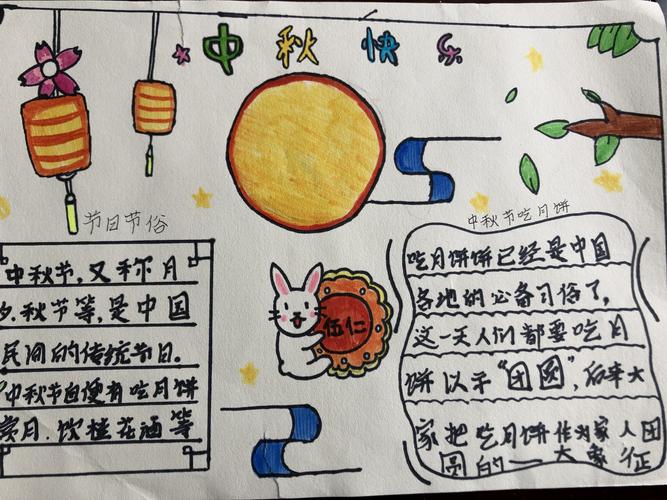 中秋快乐
节日节俗
中秋节,又称月
夕,秋节等,是中国
民间的传统节日.
中秋节自便有吃月饼
赏月.饮桂花酒等
伍仁
中秋节吃月饼
吃月饼饼已经是中国
各地的必备习俗了,
这一天人们都要吃月
饼以示"团圆",后来大
家把吃月饼作为家人团
圆的一大象征